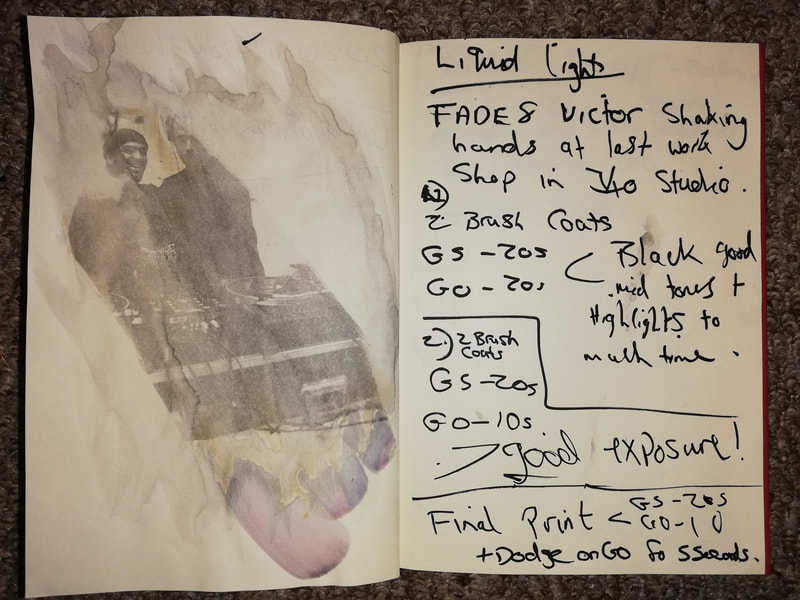 Liquid lights
FADE & Victor Shaking
hands at last work
Shop in Studio.
1)
2 Brush Coats
GS - 20s
GO - 20s
Black good
mid tones +
Highlights to
much time.
2.) 2 Brush
Coats
GS - 20s
GO - 10s
> good exposure!
Final Print < GS - 20s
GO - 10
+ Dodge on GO fo 5 Seconds.